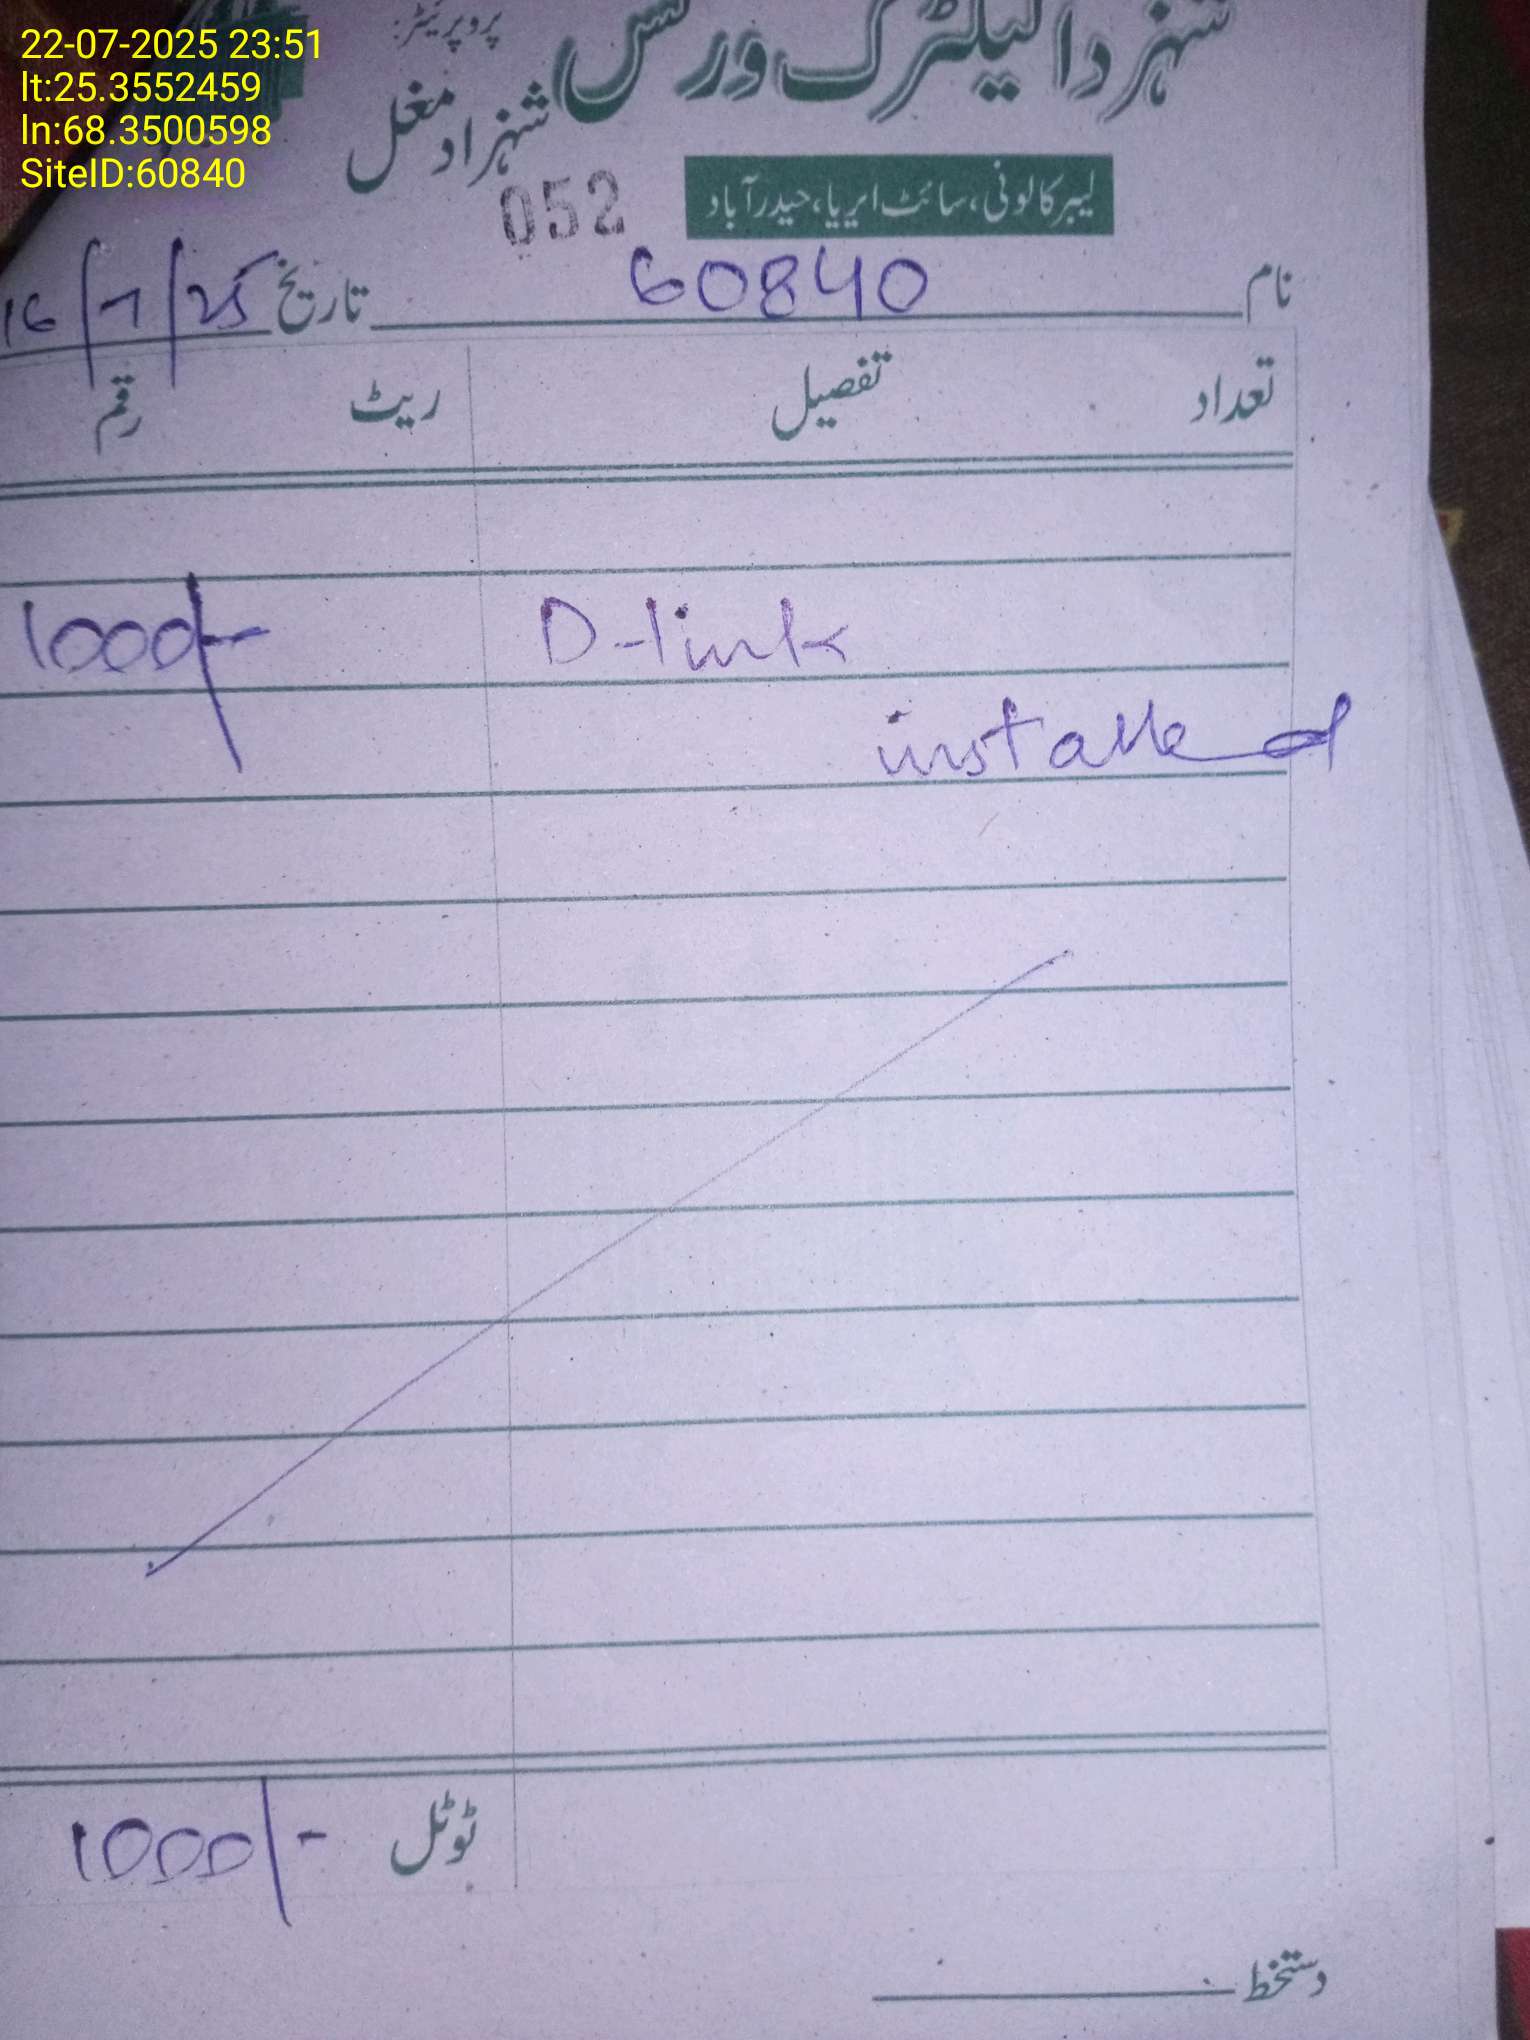 22-07-2025 23:51
lt:25.3552459
ln:68.3500598
SiteID:60840
شہزاد الیکٹرک ورکس
پروپرئیٹر:
شہزاد مغل
لیبر کالونی، سائٹ ایریا، حیدرآباد
052
نام 60840 تاریخ 16/7/25
تعداد تفصیل ریٹ رقم
D-link 1000/-
installed
ٹوٹل 1000/-
دستخط